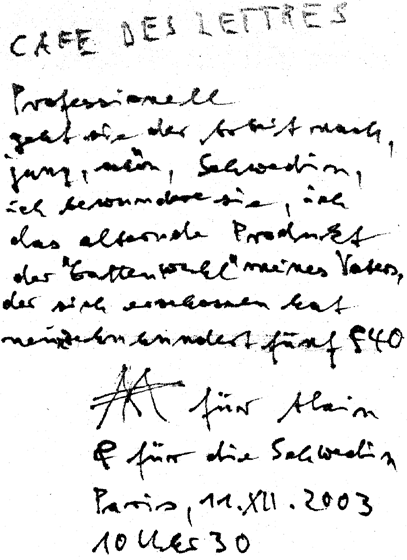 CAFE DES LETTRES
Professionell
geht sie der Arbeit nach,
jung, schön, Schwedin,
ich bewundere sie, ich
das alternde Produkt
der "Gattenwahl" meines Vaters,
der sich erschossen hat
neunzehnhundert fünf &40
für Alain
& für die Schwedin
Paris, 11.XII.2003
10 Uhr 30